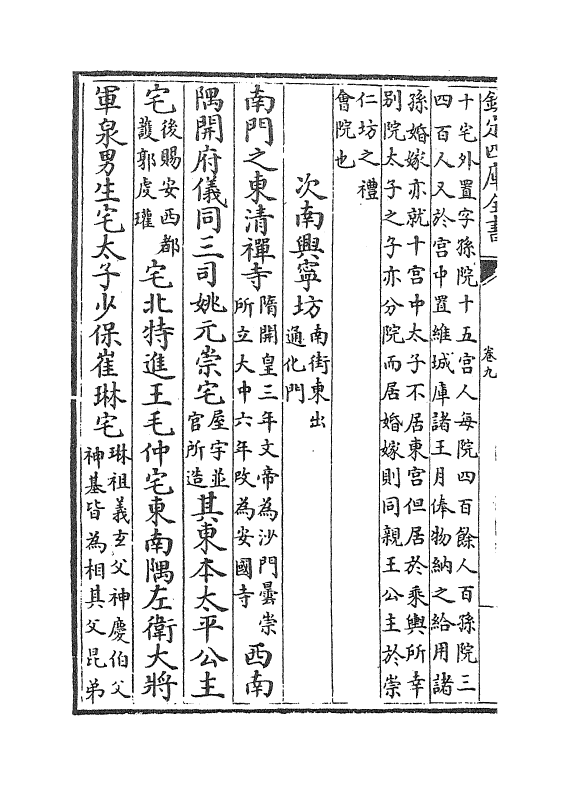 欽定四庫全書
卷九
十宅外置字孫院十五宫人每院四百餘人百孫院三
四百人又於宫中置維城庫諸王月俸物納之給用諸
孫婚嫁亦就十宫中太子不居東宫但居於乘輿所幸
别院太子之子亦分院而居婚嫁則同親王公主於崇
仁坊之禮
會院也
次南興寧坊南街東出通化門
南門之東清禪寺隋開皇三年文帝為沙門曇崇所立大中六年改為安國寺西南
隅開府儀同三司姚元崇宅屋宇並官所造其東本太平公主
宅後賜安西都護郭虔瓘宅北特進王毛仲宅東南隅左衛大將
軍泉男生宅太子少保崔琳宅琳祖義玄父神慶伯父神基皆為相其父昆弟